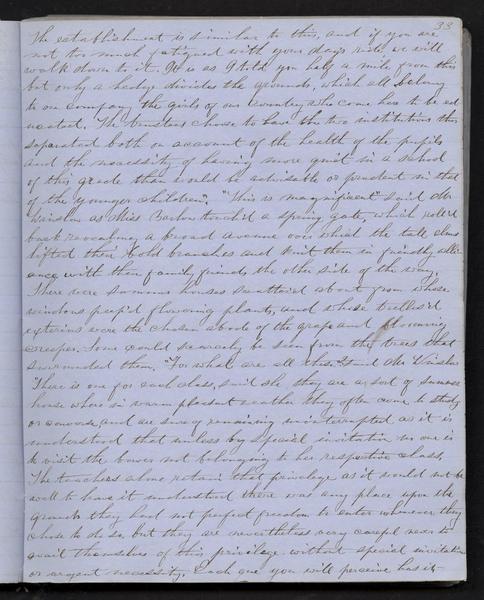 33
The establishment is similar to this, and if you are
not too much fatigued with your days ride we will
walk down to it. It is as I told you half a mile from this
but only a hedge divides the grounds, which all belong
to our company, the girls of our country who come here to be ed
ucated. The trustees choose to have the two institutions thus
separated both on account of the health of the pupils
and the necessity of having more quiet in a school
of this grade than would be advisable or prudent in that
of the younger children. "This is magnificent" said Mr
Winslow as Miss Barton touch'd a spring gate, which roll'd
back revealing a broad avenue over which the tall elms
lifted their bold branches and knit them in friendly alli
ance with their family friends the other side of the way.
There were summer houses scattered about from whose
windows peep'd flowering plants, and whose trellis'd
exteriors were the chosen abode of the grape and flowering
creeper. Some could scarcely be seen from the trees that
surrounded them. "For what are all these" said Mr Winslow
There is one for each class, said she, they are a sort of summer
house where in warm pleasant weather they often come to study
or converse and are sure of remaining uninterrupted as it is
understood that unless by special invitation no one is
to visit the bower not belonging to her respective class.
The teachers alone retain that privilege as it would not be
well to have it understood there was any place upon the
grounds they had not perfect freedom to enter whenever they
chose to do so, but they are nevertheless very careful never to
avail themselves of this privilege without special invitation
or urgent necessity. Each one you will perceive has it-